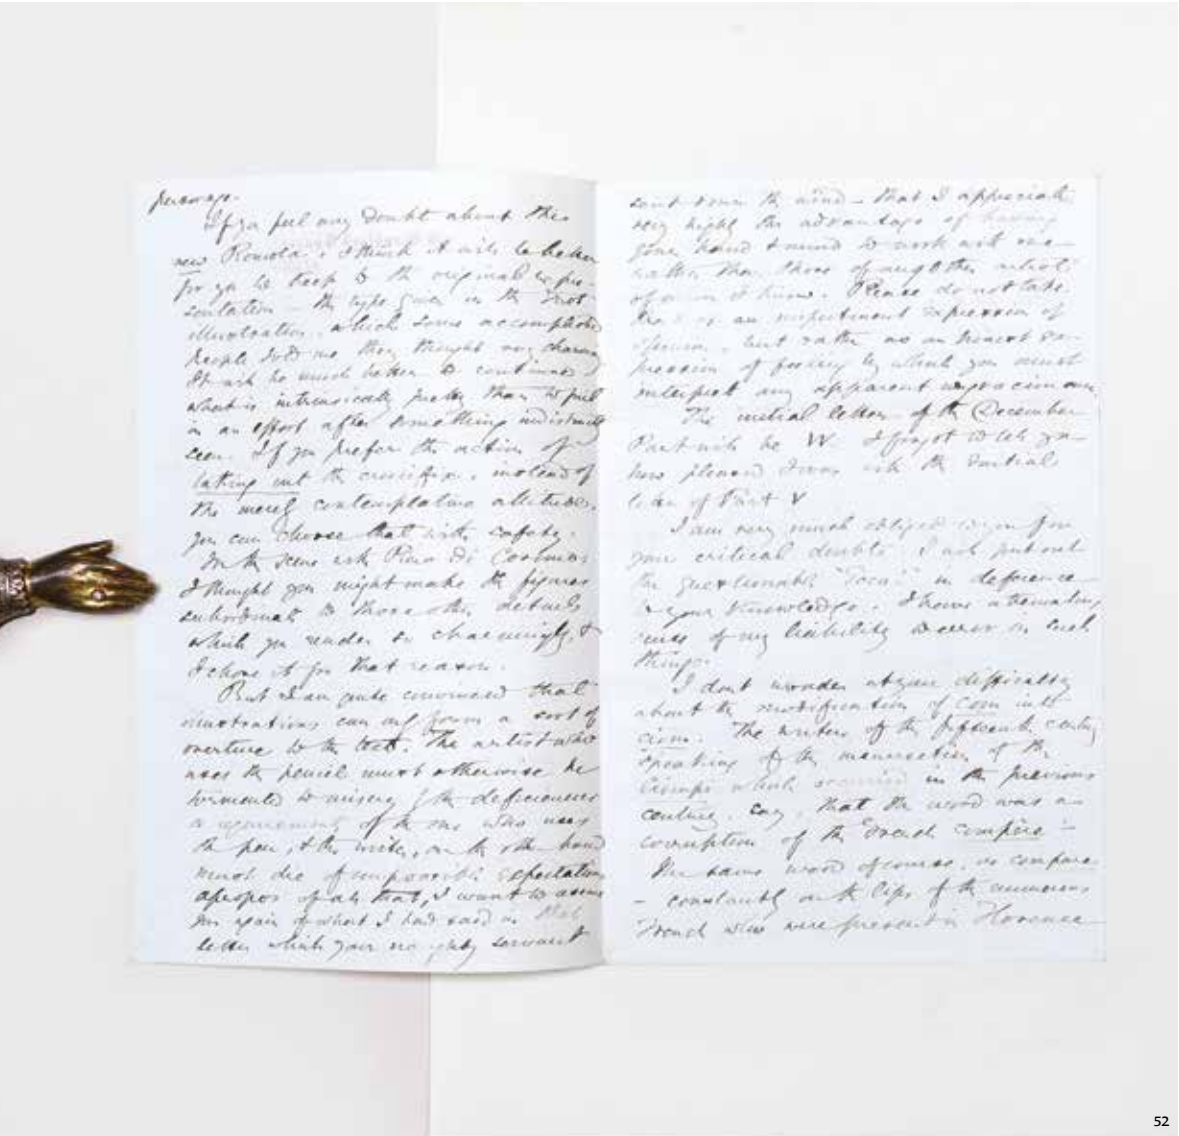 personage.
If you feel any doubt about this
new Romola, I think it will be better
for you to keep to the original repre-
sentation – the type given in the first
illustration, which some accomplished
people told me they thought very charming
It will be much better to continue
what is intrinsically pretty than to fail
in an effort after something indistinctly
seen. If you prefer the action of
taking out the crucifix, instead of
the merely contemplative attitude,
you can choose that with safety.
In the scene with Piero di Cosimo
I thought you might make the figures
subordinate to those other details
which you render so charmingly, &
I chose it for that reason.
But I am quite convinced that
illustrations can only form a sort of
overture to the text. The artist who
uses the pencil must otherwise be
tormented to misery by the deficiencies
or requirements of the one who uses
the pen, & the writer, on the other hand
must die of impossible expectations
apropos of all that, I want to assure
you again of what I had said in that
letter which your naughty servant
sent down the wind – that I appreciate
very highly the advantage of having
your hand & mind to work with me
rather than those of any other artist
of whom I know. Please do not take
that as an impertinent expression of
opinion, but rather as an honest ex-
pression of feeling by which you must
interpret any apparent ungraciousness
The initial letter of the December
Part will be W. I forgot to tell you
how pleased I was with the initial
letter of Part V
I am very much obliged to you for
your critical doubts. I will put out
the questionable "Tocsin" in deference
to your knowledge. I have a
sense of my liability to error in such
things.
I don't wonder at your difficulty
about the modification of Com into
ciom. The writers of the fifteenth century
speaking of the insurrection of the
Ciompi which occurred in the previous
century, say, that the word was a
corruption of the French compère –
the same word of course, as compare
– constantly on the lips of the numerous
French who were present in Florence
52